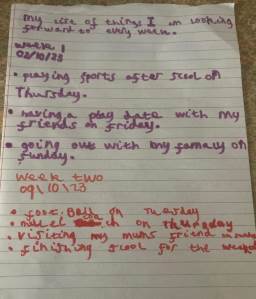 my list of things I am looking
forward to every week.
week 1
02/10/23
• playing sports after scool on
Thursday.
• having a play date with my
friends on friday.
• going out with my famaly on
sunday.
week two
09/10/23
• foot.Ball on Tuesday
on Thursday
• visiting my mums friend
• finishing scool for the